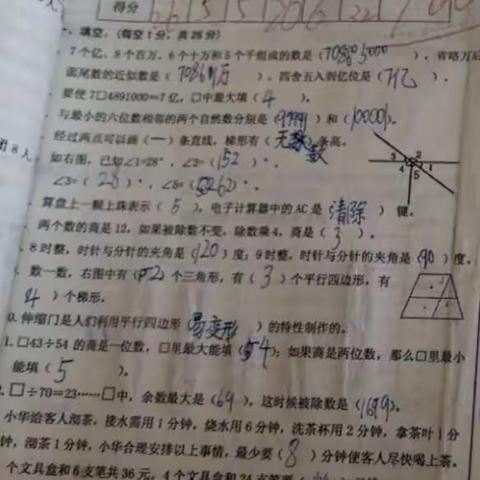 得分
一、填空。(每空1分，共25分)
7个亿、8个百万、6个十万和5个千组成的数是(708605000)，省略万后
面尾数的近似数是( )，四舍五入到亿位是(7亿)。
要使7□4891000≈7亿，□中最大填(4)。
与最小的六位数相邻的两个自然数分别是( )和( )。
经过两点可以画(一)条直线，梯形有(无数)条高。
如右图，已知∠1=28°，∠2=(152)°，
∠3=(28)°，∠5=(62)°。
3 2 4 1 5
算盘上一颗上珠表示(5)，电子计算器中的AC是(清除)键。
两个数的商是12，如果被除数不变，除数乘4，商是(3)。
8时整，时针与分针的夹角是(120)度；9时整，时针与分针的夹角是(90)度。
数一数，右图中有(2)个三角形，有(3)个平行四边形，有
(4)个梯形。
0. 伸缩门是人们利用平行四边形(易变形)的特性制作的。
1. □43÷54的商是一位数，□里最大能填(54)；如果商是两位数，那么□里最小
能填(5)。
□÷70=23……□中，余数最大是(69)，这时候被除数是(1679)。
小华给客人沏茶，接水需用1分钟，烧水用6分钟，洗茶杯用2分钟，拿茶叶1分
钟，沏茶1分钟，小华合理安排以上事情，最少要(8)分钟使客人尽快喝上茶。
个文具盒和6支笔共36元，4个文具盒和24支笔要